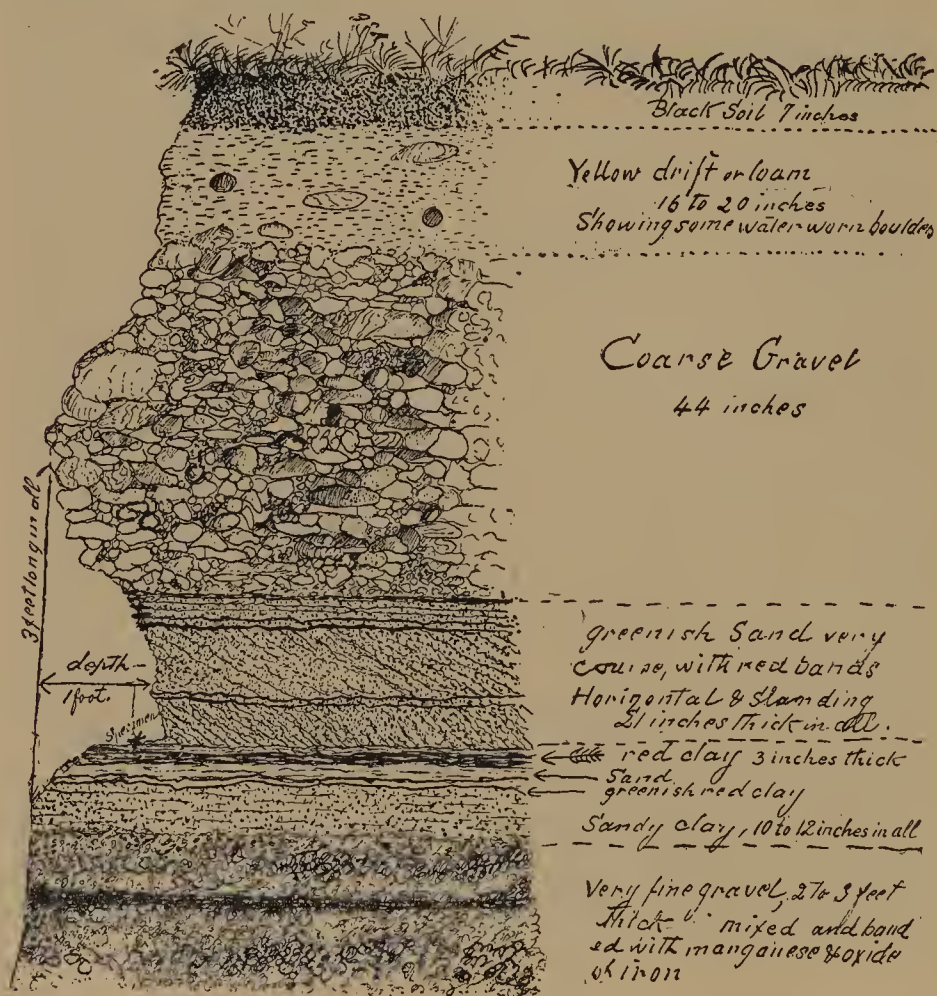 Black Soil 7 inches
Yellow drift or loam
16 to 20 inches
Showing some water worn boulders
Coarse Gravel
44 inches
3 feet long in all
greenish Sand very
course, with red bands
Horizontal & Slanding
21 inches thick in all.
depth
1 foot.
Specimen
red clay 3 inches thick
Sand
greenish red clay
Sandy clay, 10 to 12 inches in all
Very fine gravel, 2 to 3 feet
thick mixed and band
ed with manganese & oxide
of iron